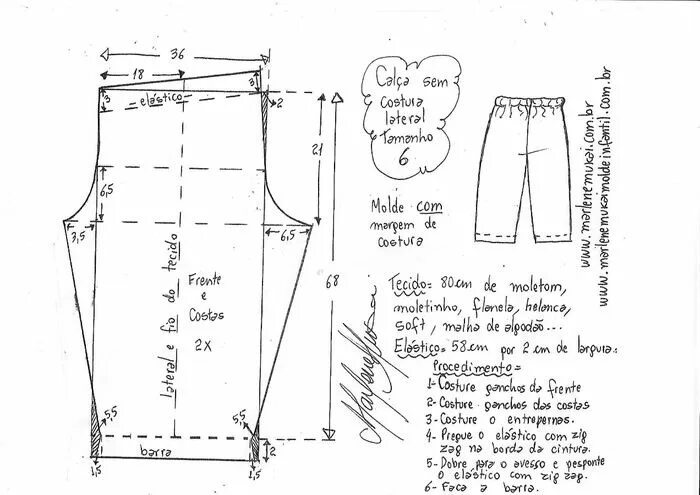 36
18
3
3
elástico
2
21
6,5
3,5
6,5
68
lateral e fio do tecido
Frente
e
Costas
2x
5,5
5,5
barra
2
1,5
1,5
Calça sem
costura
lateral
Tamanho
6
Molde com
margem de
costura
www.marlenemukai.com.br
www.marlenemukaimoldeinfantil.com.br
Tecido= 80cm de moletom,
moletinho, flanela, helanca,
soft, malha de algodão...
Elástico= 58cm por 2 cm de largura.
Procedimento=
1- Costure ganchos da frente
2- Costure ganchos das costas
3- Costure o entrepernas.
4- Pregue o elástico com zig
zag na borda da cintura.
5- Dobre para o avesso e pesponte
o elástico com zig zag.
6- Faça a barra.